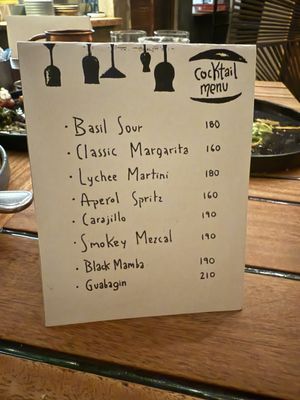 cocktail
menu
· Basil Sour 180
· Classic Margarita 160
· Lychee Martini 180
· Aperol Spritz 160
· Carajillo 190
· Smokey Mezcal 190
· Black Mamba 190
· Guabagin 210